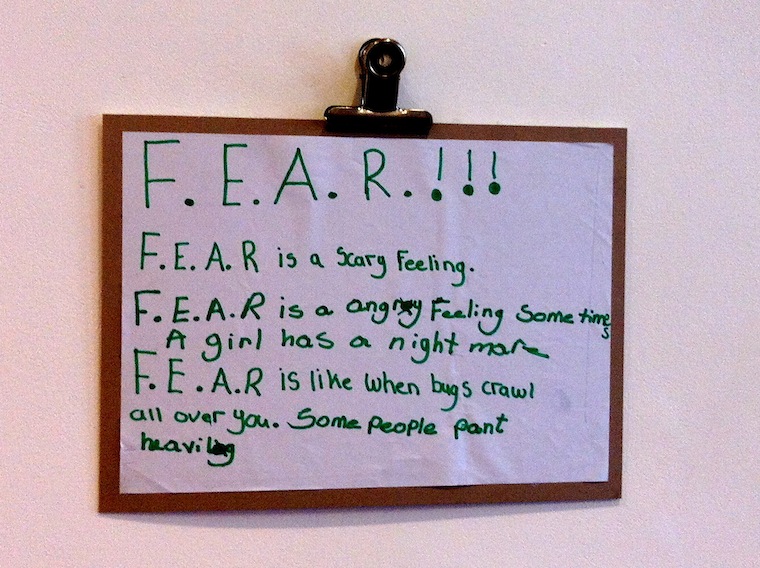 F. E. A. R. !!!
F. E. A. R is a Scary Feeling.
F. E. A. R is a angry Feeling Sometimes
A girl has a night mare
F. E. A. R is like when bugs crawl
all over you. Some people pant
heavily